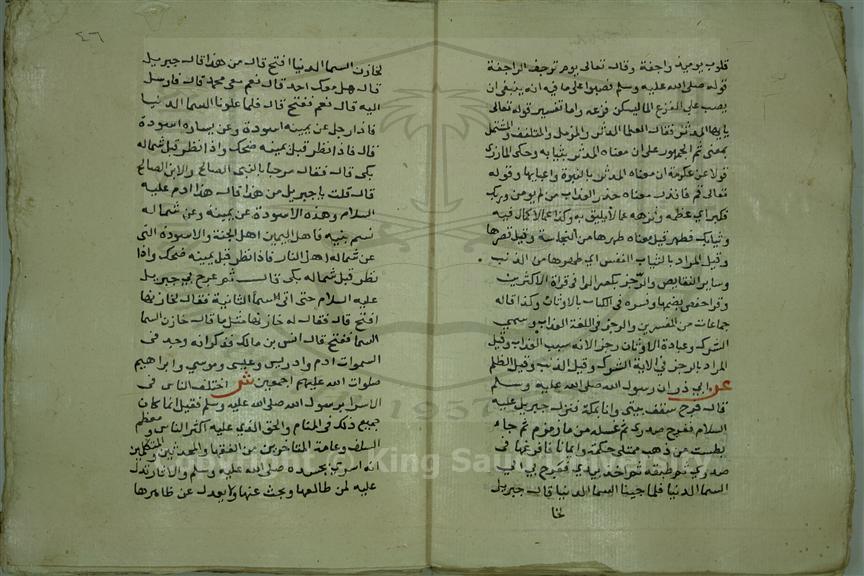 قلوب يوميذ واجفة وقال تعالى يوم ترجف الراجفة
قوله صلى الله عليه وسلم فصبوا على ما فيه انه ينبغي ان
يصب على الفزع الما ليسكن فزعه واما تفسير قوله تعالى
يا يها المدثر فقال العلما المدثر والمزمل والمتلفف والمشتمل
بمعنى ثم الجمهور على ان معناه المدثر بثيابه وحكى الماوردي
قولا عن عكرمة ان معناه المدثر بالنبوة واعبايها وقوله
تعالى قم فانذر معناه حذر العذاب من لم يومن وربك
فكبر اي عظمه ونزهه عما لا يليق به وكذا عما لا كمال فيه
وثيابك فطهر قيل معناه طهرها من النجاسة وقيل قصرها
وقيل المراد بالثياب النفس اي طهرها من الذنب
وساير النقايص والرجز بكسر الرا في قراة الاكثرين
وقرا حفص بضمها وفسره في الكتاب بالاوثان وكذا قاله
جماعات من المفسرين والرجز في اللغة العذاب وسمي
الشرك وعبادة الاوثان رجزا لانه سبب العذاب وقيل
المراد بالرجز في الاية الشرك وقيل الذنب وقيل الظلم
عن ابي ذر ان رسول الله صلى الله عليه وسلم
قال فرج سقف بيتي وانا بمكة فنزل جبريل عليه
السلام ففرج صدري ثم غسله من ماء زمزم ثم جاء
بطست من ذهب ممتلي حكمة وايمانا فافرغها في
صدري ثم طبقه ثم اخذ بيدي فعرج بي الى
السما الدنيا فلما جينا السما الدنيا قال جبريل
لخا
٤٦
لخازن السما الدنيا افتح قال من هذا قال جبريل
قال هل معك احد قال نعم معي محمد قال فارسل
اليه قال نعم ففتح قال فلما علونا السما الدنيا
فاذا رجل عن يمينه اسودة وعن يساره اسودة
قال فاذا نظر قبل يمينه ضحك واذا نظر قبل شماله
بكى قال فقال مرحبا بالنبي الصالح والابن الصالح
قال قلت يا جبريل من هذا قال هذا ادم عليه
السلام وهذه الاسودة عن يمينه وعن شماله
نسم بنيه فاهل اليمين اهل الجنة والاسودة التي
عن شماله اهل النار فاذا نظر قبل يمينه ضحك واذا
نظر قبل شماله بكى قال ثم عرج بي جبريل
عليه السلام حتى اتى السما الثانية فقال لخازنها
افتح قال فقال له خازنها مثل ما قال خازن السما
السما ففتح قال انس بن مالك فذكر انه وجد في
السموات ادم وادريس وعيسى وموسى وابراهيم
صلوات الله عليهم اجمعين ش اختلف الناس في
الاسرا برسول الله صلى الله عليه وسلم فقيل انما كان
جميع ذلك في المنام والحق الذي عليه اكثر الناس ومعظم
السلف وعامة المتاخرين من الفقها والمحدثين والمتكلمين
انه اسري بجسده صلى الله عليه وسلم والاثار تدل
عليه لمن طالعها وبحث عنها ولا يعدل عن ظاهرها
1957
King Saud